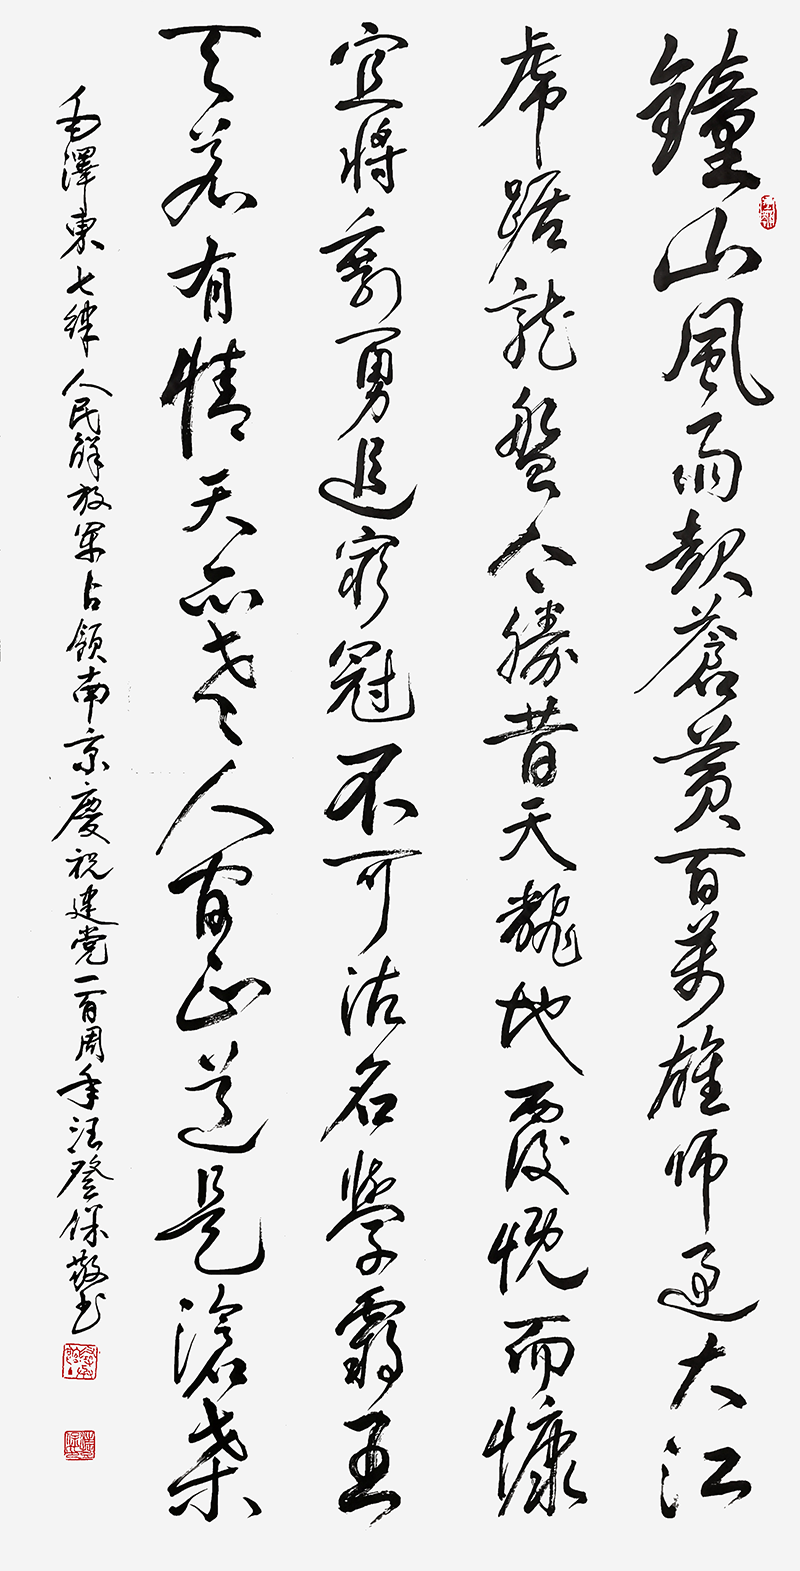 鐘山風雨起蒼黄百萬雄師過大江
虎踞龍盤今勝昔天翻地覆慨而慷
宜將剩勇追窮寇不可沽名學霸王
天若有情天亦老人間正道是滄桑
毛澤東七律人民解放軍占領南京慶祝建党一百周年汪登保敬书